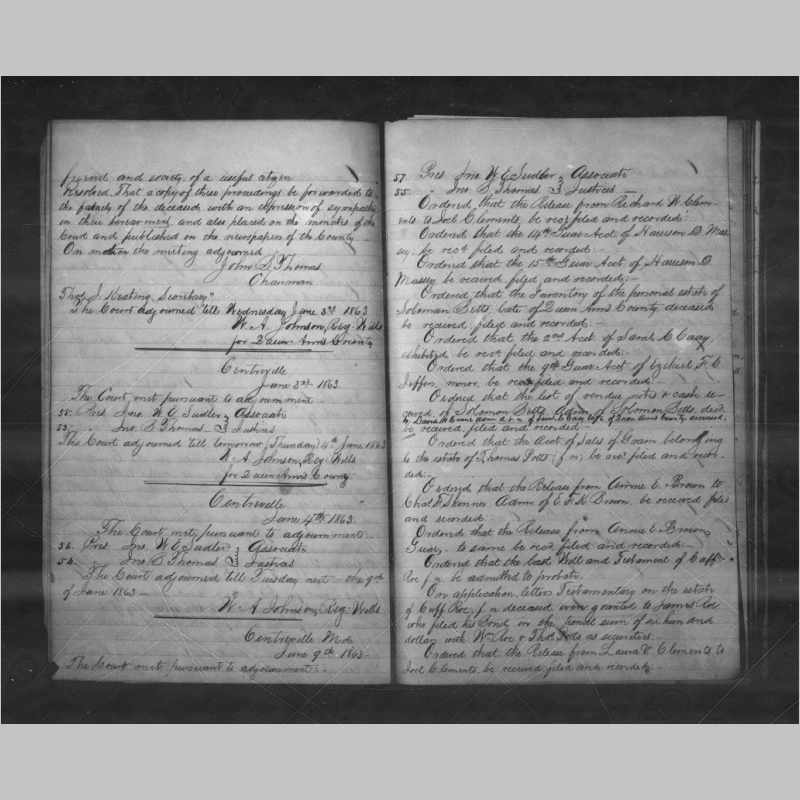 friend and society of a useful citizen
Resolved, That a copy of these proceedings be forwarded to
the family of the deceased with an expression of sympathy
in their bereavement, and also placed on the minutes of the
Court and published in the newspapers of the County
On motion the meeting adjourned
John S. Thomas
Chairman
Thos. J. Keating, Secretary"
The Court adjourned till Wednesday June 3rd 1863
W. A. Johnson, Reg. Wills
for Queen Ann's County
Centreville
June 3rd 1863
The Court met pursuant to adjournment
Pres. Jno. W. E. Sudler } Associate
53 " Jno. S. Thomas } Justices
The Court adjourned till tomorrow (Thursday) 4th June 1863
W. A. Johnson, Reg. Wills
for Queen Ann's County
Centreville
June 4th 1863.
The Court met pursuant to adjournment
56. Pres. Jno. W. E. Sudler } Associate
54. " Jno. S. Thomas } Justices
The Court adjourned till Tuesday next the 9th
of June 1863 —
W. A. Johnson, Reg. Wills
Centreville Md.
June 9th 1863 —
The Court met pursuant to adjournment —
57. Pres. Jno. W. E. Sudler } Associate
55 " Jno. S. Thomas } Justices —
Ordered that the Release from Richard W. Clem-
ents to Joel Clements, be recd filed and recorded.
Ordered that the 14th Guar. Acct of Harrison D. Mas-
sey be recd filed and recorded.
Ordered that the 15th Guar. Acct of Harrison D.
Massey be received filed and recorded. —
Ordered that the Inventory of the personal estate of
Solomon Betts, late of Queen Ann's County deceased
be received, filed and recorded. —
Ordered that the 2nd Acct of Saml. C. Casey,
exhibited be recd filed and recorded. —
Ordered that the 9th Guar. Acct of Ezekiel F. C.
minor, be recd filed and recorded.
Ordered that the list of vendue notes & cash re-
ceived of Solomon Betts Admr of Solomon Betts, decd
late of Queen Anns County deceased,
be received, filed and recorded.
Ordered that the Acct of Sales of Grain belonging
to the estate of Thomas Potts; f. n; be recd filed and recor-
ded. —
Ordered that the Release from Annie E. Brown to
Chas. F. Skinner Admr of E. F. K. Brown, be received filed
and recorded.
Ordered that the Release from Annie E. Brown,
Guar. to same be recd filed and recorded.
Ordered that the last Will and Testament of Cuff
Roe f. n be admitted to probate.
On application, letters Testamentary on the estate
of Cuff Roe, f. n deceased were granted to James Roe
who filed his bond in the penal sum of six hundred
dollars with Wm Roe & Thos. as securities.
Ordered that the Release from Laura V. Clements to
Joel Clements, be received, filed and recorded. —